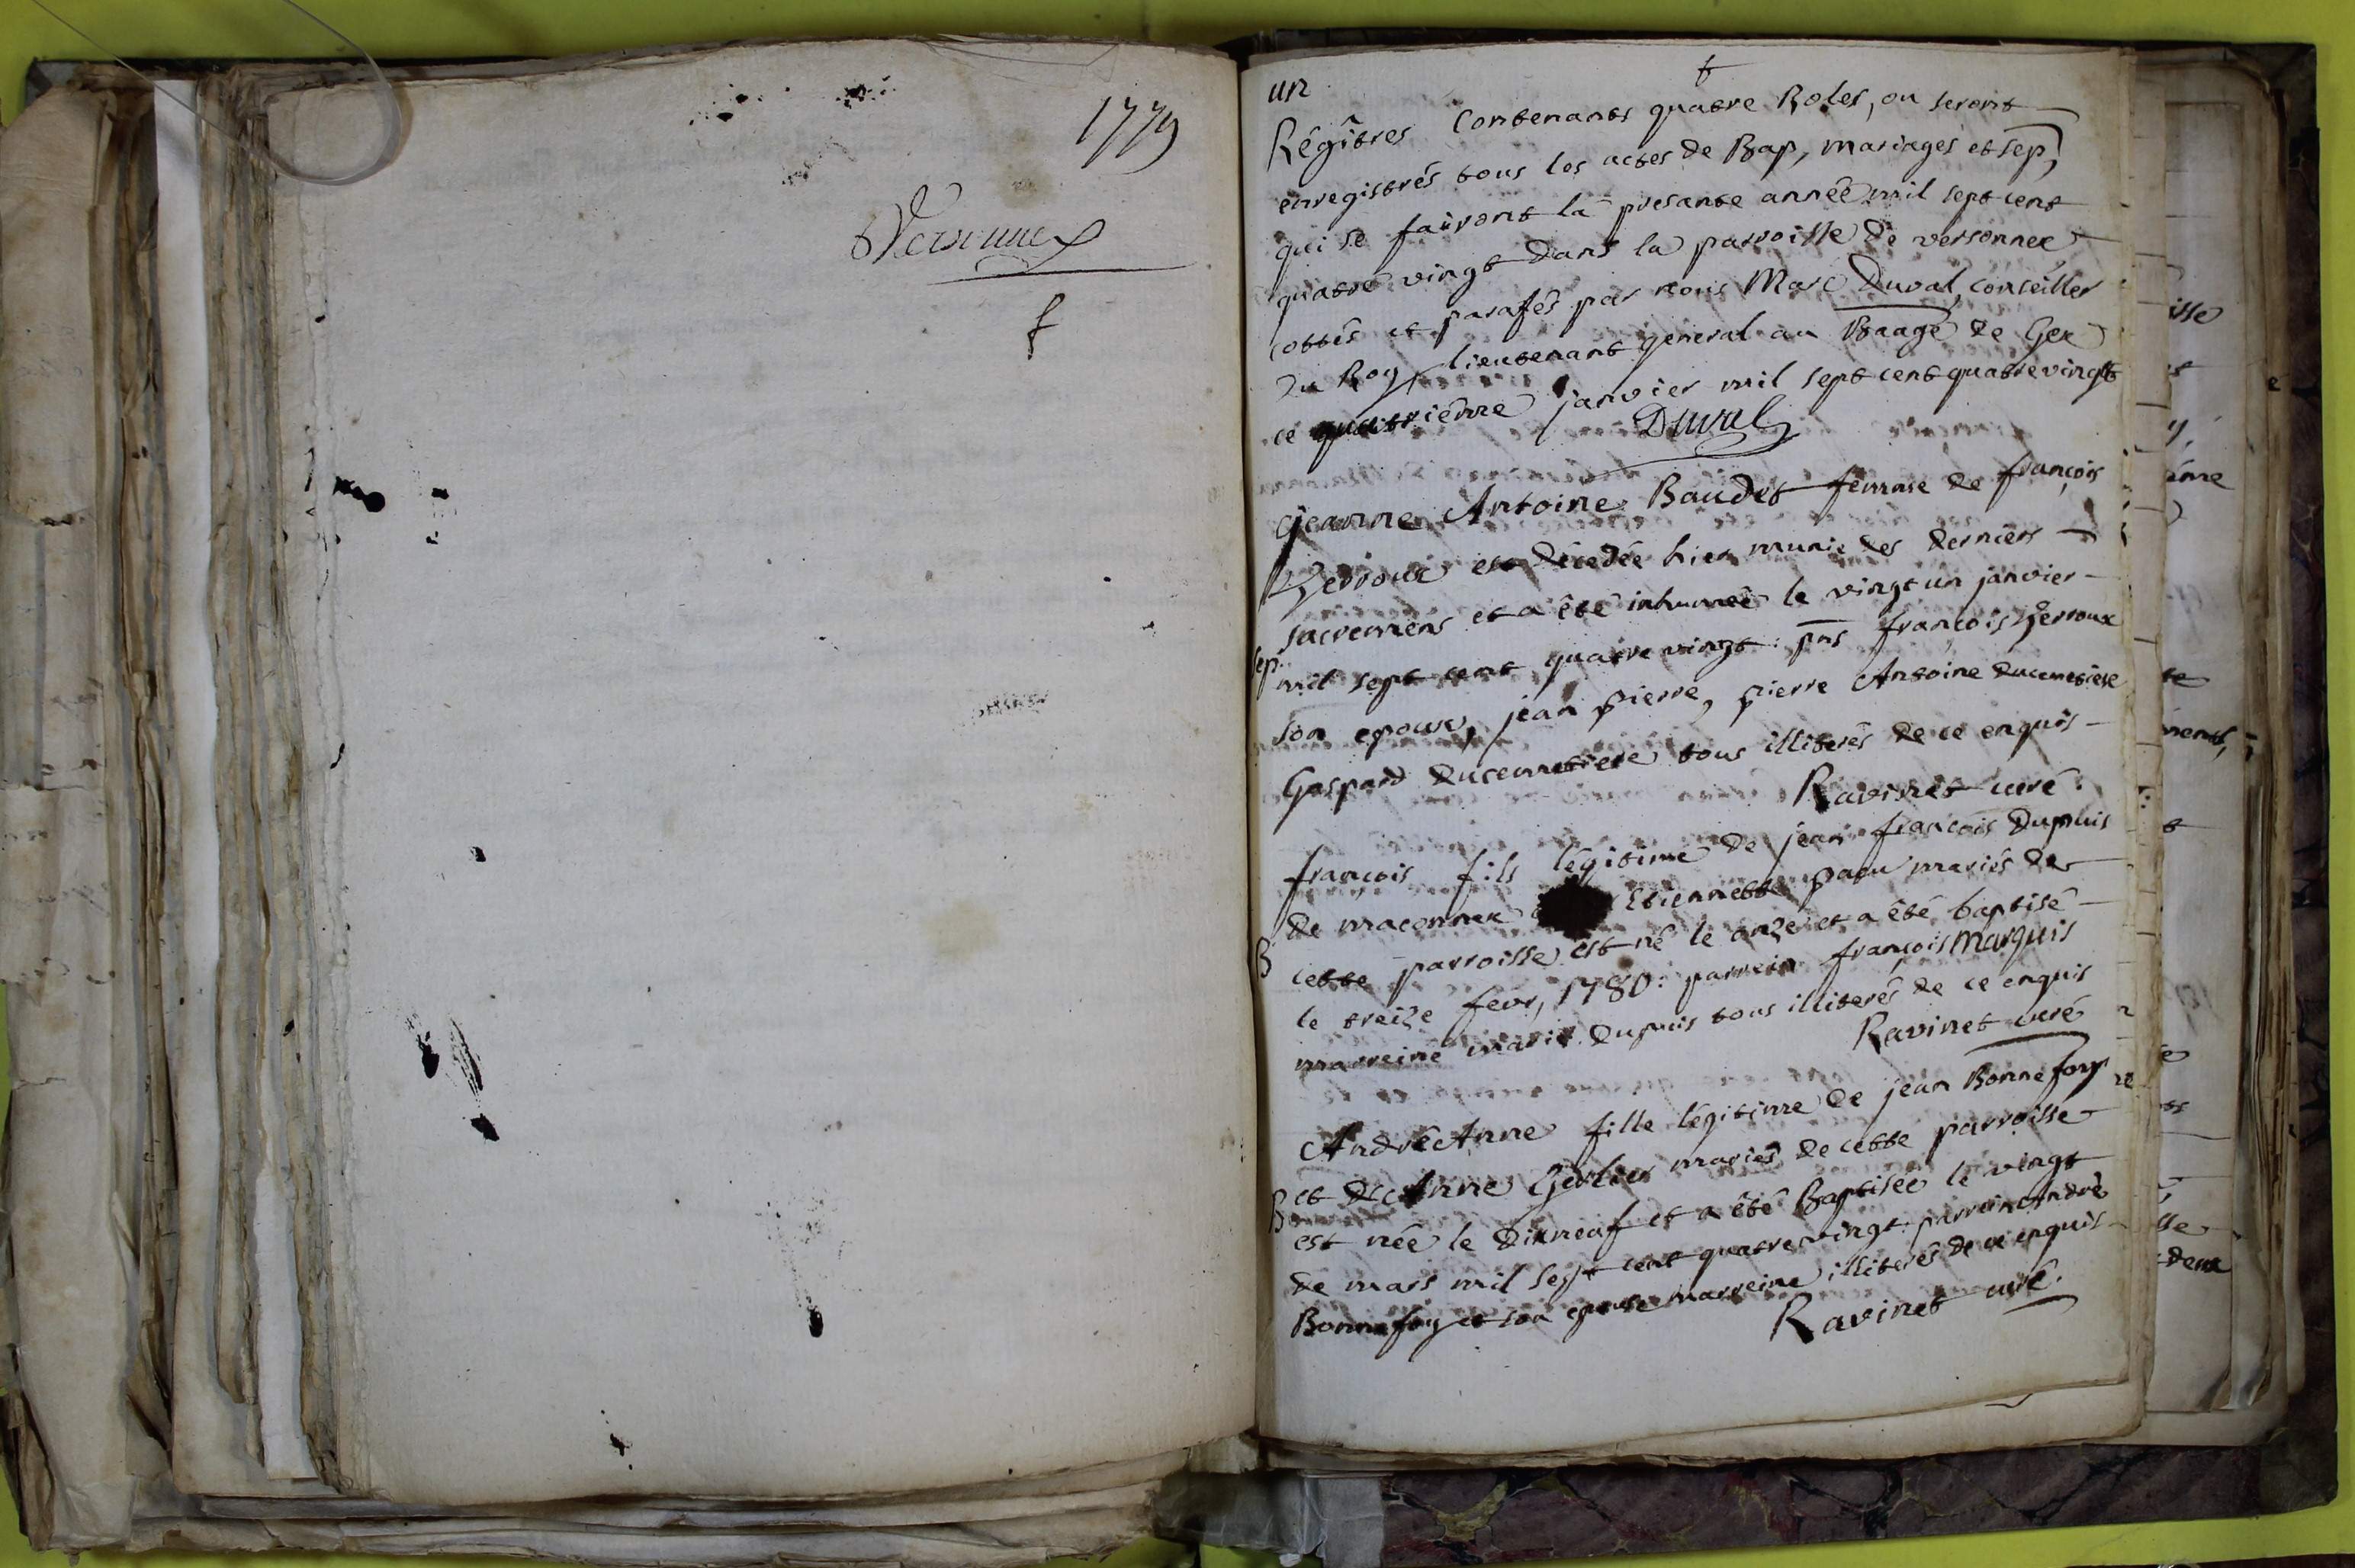 1779
Versonnex
un
Régîtres Contenants quatre Roles, ou seront
enregistrés tous les actes de Bap, mariages et sep,
qui se fairont la presante année mil sept cent
quatre vingt dans la parroisse de versonnex
cottés et parafés par nous Marc Duval, conseiller
du Roy, lieutenant general au Baage de Gex
ce quatrième janvier mil sept cent quatrevingt
Duval
jeanne Antoine Baudet femme de françois
est décedée hier munie des derniers
sacremens et a été inhumée le vingt un janvier
sep.
mil sept cent quatre vingt: pns françois
son epoux, jean pierre, pierre Antoine ducemetiere
Gaspard ducemetiere tous illiterés de ce enquis
Ravinet curé.
françois fils légitime de jean françois Dupuis
de maconnex Etiennette mariés de
B
cette parroisse est né le onze et a été baptisé
le treize fevr, 1780: parrein françois Marquis
marreine marie Dupuis tous illiterés de ce enquis
Ravinet curé
André Anne fille légitime de jean Bonnefoy
et de Anne Gerlier mariés de cette parroisse
B
est née le dixneuf et a été Baptisée le vingt
de mars mil sept cent quatre vingt: parrein André
Bonnefoy et son epouse marreine illiterés de ce enquis
Ravinet curé.